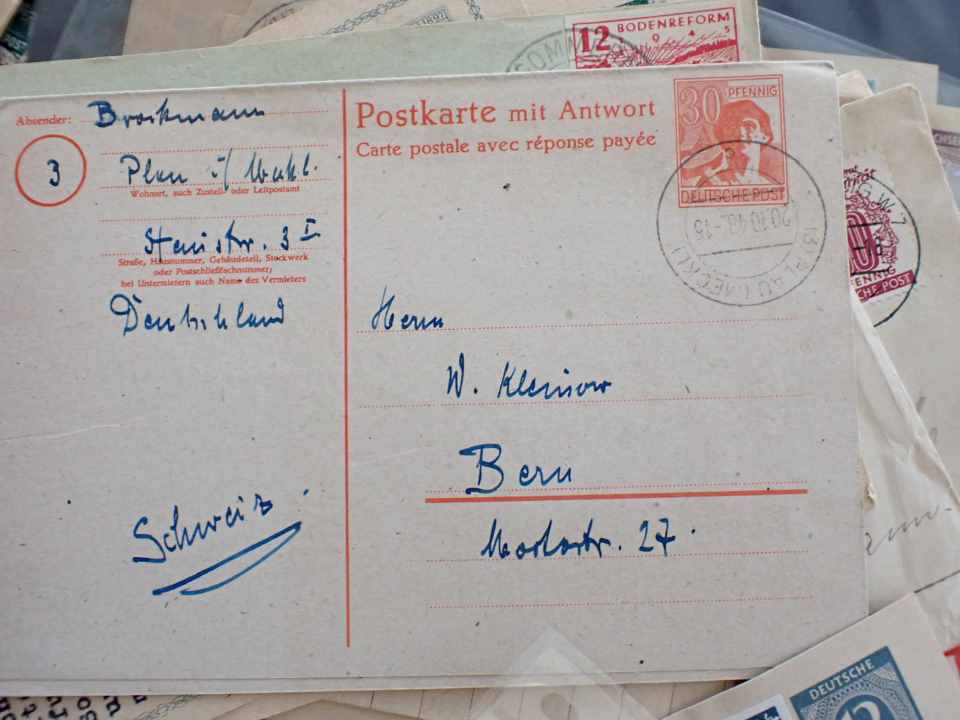 1897
12 BODENREFORM
1945
Absender: Brockmann
3
Plau i/ Meckl.
Wohnort, auch Zustell- oder Leitpostamt
3 I
Straße, Hausnummer, Gebäudeteil, Stockwerk
oder Postschließfachnummer;
bei Untermietern auch Name des Vermieters
Deutschland
Schweiz
Postkarte mit Antwort
Carte postale avec réponse payée
30 PFENNIG
DEUTSCHE POST
20.10.48.-15
(3) PLAU (MECKL)
Herrn
W. Kleinow
Bern
27
PFENNIG
CHE POST
DEUTSCHE